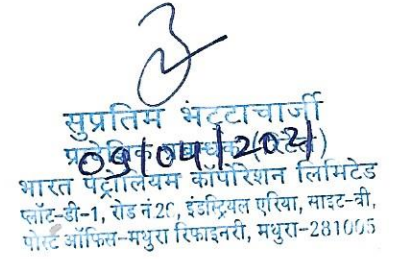 सुप्रतिम भट्टाचार्जी
09/04/2021
भारत पेट्रोलियम कॉर्पोरेशन लिमिटेड
प्लॉट-डी-1, रोड नं 20, इंडस्ट्रियल एरिया, साइट-बी,
पोस्ट ऑफिस-मथुरा रिफाइनरी, मथुरा-281005